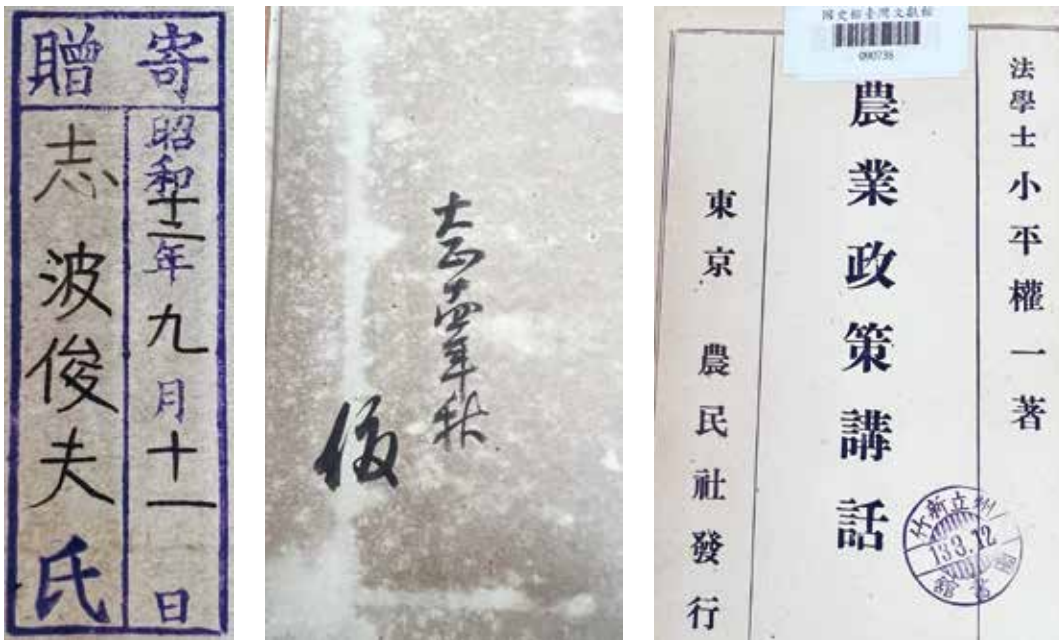 寄贈
昭和十二年九月十一日
志波俊夫氏
大正十四年秋
俊
國史館臺灣文獻館
090735
法學士 小平權一著
農業政策講話
東京 農民社發行
州立新竹
13.3.12
圖書館